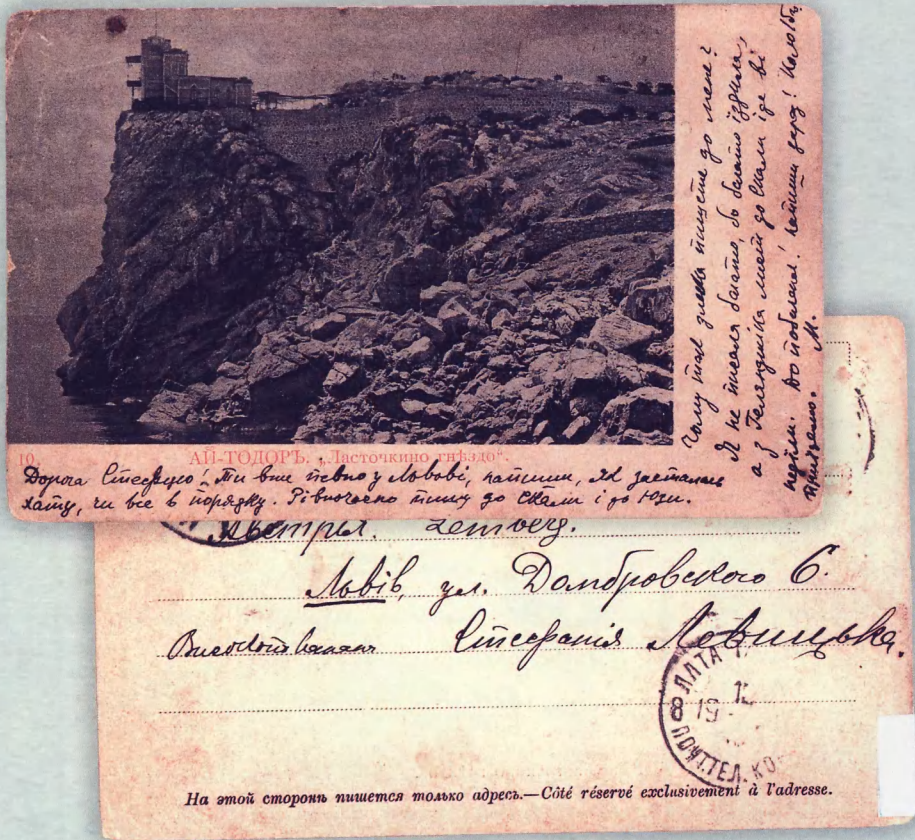 10.
АЙ-ТОДОРЪ. „Ласточкино гнѣздо“.
Дорога Стефцю, Ти вже певно у Львові, напиши, як застала
хату, чи все в порядку. Рівночасно пишу до Скали і до Юзи.
Чому так зле пишете до мене?
Я не писала багато, бо багато їздила,
а з Геленджіка лист до Скали іде ві
неділи. До побачення! напиши зараз! Цалую
М.
Австрія. Lemberg.
Львів, ул. Домбровского 6.
Стефанія Левицька.
ЯЛТА
8 19
ПОЧ.ТЕЛ.КО
На этой сторонѣ пишется только адресъ.—Côté réservé exclusivement à l'adresse.